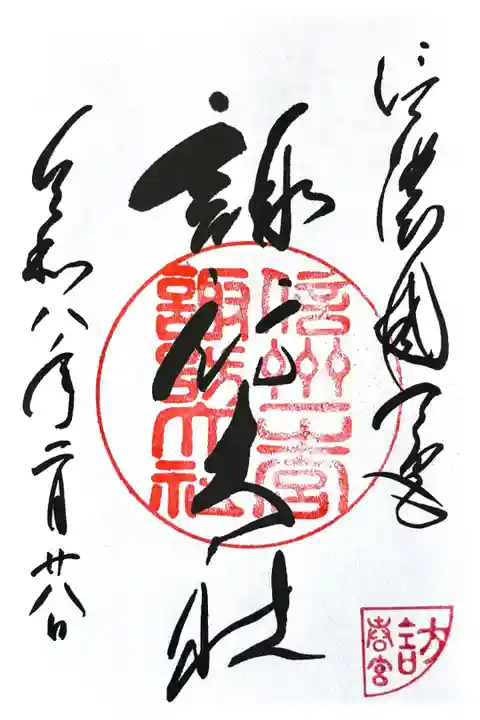 信濃國一宮
諏訪大社
令和八年二月廿八日
信州一宮
諏訪大社
訪
春宮